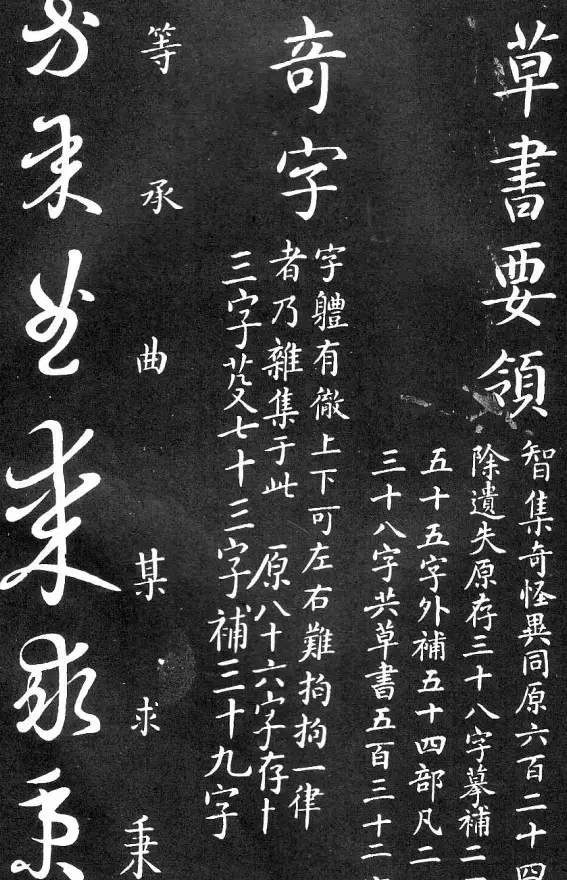 草書要領
智集奇怪異同原六百二十四
除遺失原存三十八字摹補二
五十五字外補五十四部凡二
三十八字共草書五百三十二
奇字
字體有徹上下可左右難拘拘一律
者乃雜集于此 原八十六字存十
三字
七十三字補三十九字
等
承
曲
某
求
秉